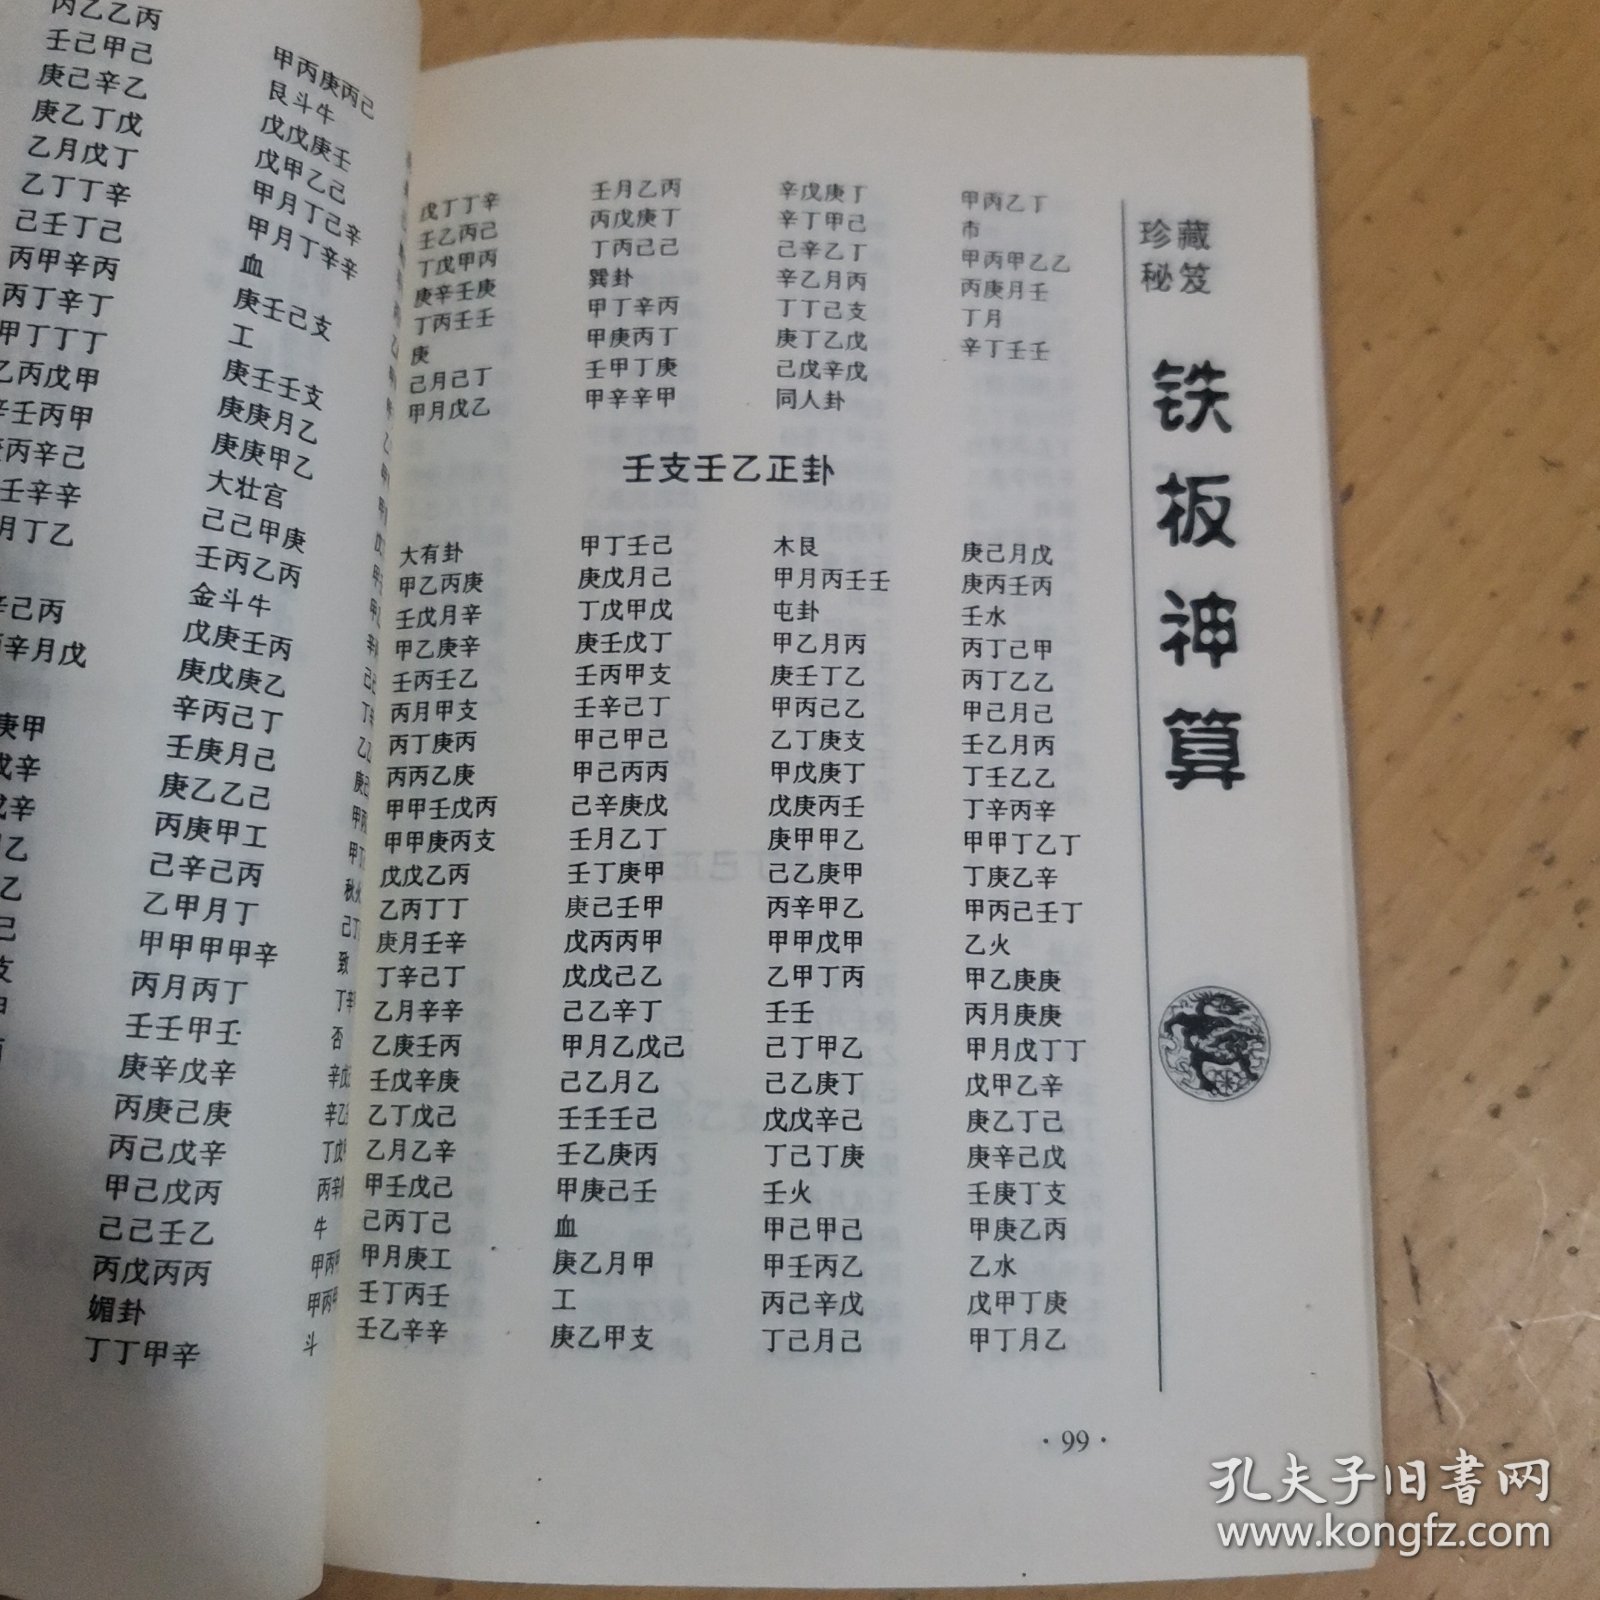 丙乙乙丙
壬己甲己
庚己辛乙
庚乙丁戊
乙月戊丁
乙丁丁辛
己壬丁己
丙甲辛丙
丙丁辛丁
甲丁丁丁
乙丙戊甲
辛壬丙甲
丙辛己
壬辛辛
月丁乙
辛己丙
辛月戊
庚甲
戊辛
甲丙庚丙己
艮斗牛
戊戊庚壬
戊甲乙己
甲月丁己辛
甲月丁辛辛
血
庚壬己支
工
庚壬壬支
庚庚月乙
庚庚甲乙
大壮宫
己己甲庚
壬丙乙丙
金斗牛
戊庚壬丙
庚戊庚乙
辛丙己丁
壬庚月己
庚乙乙己
丙庚甲工
己辛己丙
乙甲月丁
甲甲甲甲辛
丙月丙丁
壬壬甲壬
庚辛戊辛
丙庚己庚
丙己戊辛
甲己戊丙
己己壬乙
丙戊丙丙
媚卦
丁丁甲辛
戊丁丁辛
壬乙丙己
丁戊甲丙
庚辛壬庚
丁丙壬壬
庚
己月己丁
甲月戊乙
壬月乙丙
丙戊庚丁
丁丙己己
巽卦
甲丁辛丙
甲庚丙丁
壬甲丁庚
甲辛辛甲
辛戊庚丁
辛丁甲己
己辛乙丁
辛乙月丙
丁丁己支
庚丁乙戊
己戊辛戊
同人卦
甲丙乙丁
市
甲丙甲乙乙
丙庚月壬
丁月
辛丁壬壬
壬支壬乙正卦
大有卦
甲乙丙庚
壬戊月辛
甲乙庚辛
壬丙壬乙
丙月甲支
丙丁庚丙
丙丙乙庚
甲甲壬戊丙
甲甲庚丙支
戊戊乙丙
乙丙丁丁
庚月壬辛
丁辛己丁
乙月辛辛
乙庚壬丙
壬戊辛庚
乙丁戊己
乙月乙辛
甲壬戊己
己丙丁己
甲月庚工
壬丁丙壬
壬乙辛辛
甲丁壬己
庚戊月己
丁戊甲戊
庚壬戊丁
壬丙甲支
壬辛己丁
甲己甲己
甲己丙丙
己辛庚戊
壬月乙丁
壬丁庚甲
庚己壬甲
戊丙丙甲
戊戊己乙
己乙辛丁
甲月乙戊己
己乙月乙
壬壬壬己
壬乙庚丙
甲庚己壬
血
庚乙月甲
工
庚乙甲支
木艮
甲月丙壬壬
屯卦
甲乙月丙
庚壬丁乙
甲丙己乙
乙丁庚支
甲戊庚丁
戊庚丙壬
庚甲甲乙
己乙庚甲
丙辛甲乙
甲甲戊甲
乙甲丁丙
壬壬
己丁甲乙
己乙庚丁
戊戊辛己
丁己丁庚
壬火
甲己甲己
甲壬丙乙
丙己辛戊
丁己月己
庚己月戊
庚丙壬丙
壬水
丙丁己甲
丙丁乙乙
甲己月己
壬乙月丙
丁壬乙乙
丁辛丙辛
甲甲丁乙丁
丁庚乙辛
甲丙己壬丁
乙火
甲乙庚庚
丙月庚庚
甲月戊丁丁
戊甲乙辛
庚乙丁己
庚辛己戊
壬庚丁支
甲庚乙丙
乙水
戊甲丁庚
甲丁月乙
珍藏
秘笈
铁板神算
·99·
孔夫子旧书网
www.kongfz.com